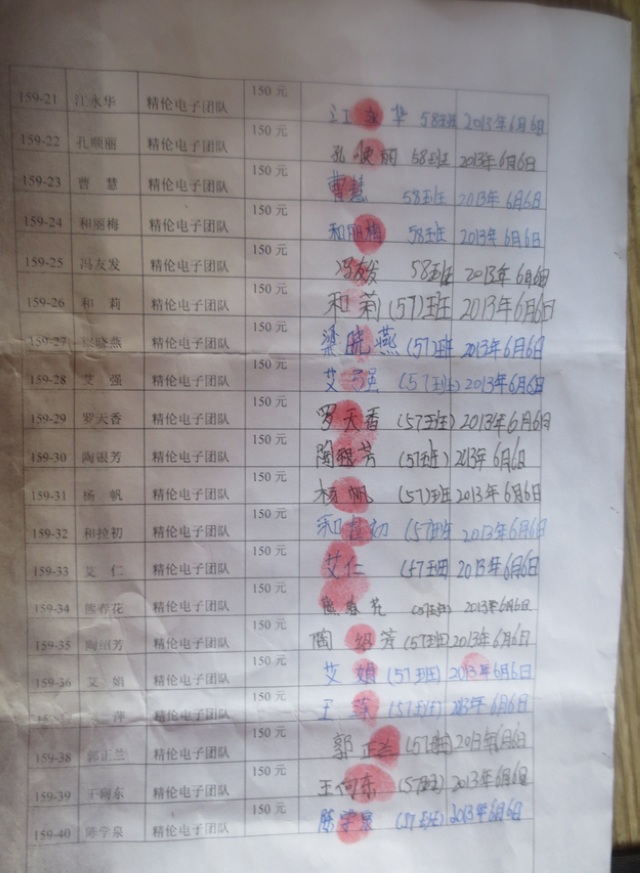 159-21 江永华 精伦电子团队 150元 江永华 58班 2013年6月6日
159-22 孔顺丽 精伦电子团队 150元 孔顺丽 58班 2013年6月6日
159-23 曹慧 精伦电子团队 150元 曹慧 58班 2013年6月6日
159-24 和丽梅 精伦电子团队 150元 和丽梅 58班 2013年6月6日
159-25 冯友发 精伦电子团队 150元 冯友发 58班 2013年6月6日
159-26 和莉 精伦电子团队 150元 和莉 (57)班 2013年6月6日
159-27 梁晓燕 精伦电子团队 150元 梁晓燕 (57)班 2013年6月6日
159-28 艾强 精伦电子团队 150元 艾强 (57班) 2013年6月6日
159-29 罗天香 精伦电子团队 150元 罗天香 (57班) 2013年6月6日
159-30 陶银芳 精伦电子团队 150元 陶银芳 (57班) 2013年6月6日
159-31 杨帆 精伦电子团队 150元 杨帆 (57)班 2013年6月6日
159-32 和拉初 精伦电子团队 150元 和拉初 (57班 2013年6月6日
159-33 艾仁 精伦电子团队 150元 艾仁 (57班) 2013年6月6日
159-34 熊春花 精伦电子团队 150元 熊春花 (57班) 2013年6月6日
159-35 陶绍芳 精伦电子团队 150元 陶绍芳 (57班) 2013年6月6日
159-36 艾娟 精伦电子团队 150元 艾娟 (57班) 2013年6月6日
萍 精伦电子团队 150元 王萍 (57班) 2013年6月6日
159-38 郭正兰 精伦电子团队 150元 郭正兰 (57班) 2013年6月6日
159-39 王向东 精伦电子团队 150元 王向东 (57班) 2013年6月6日
159-40 陈学泉 精伦电子团队 150元 陈学泉 (57班) 2013年6月6日